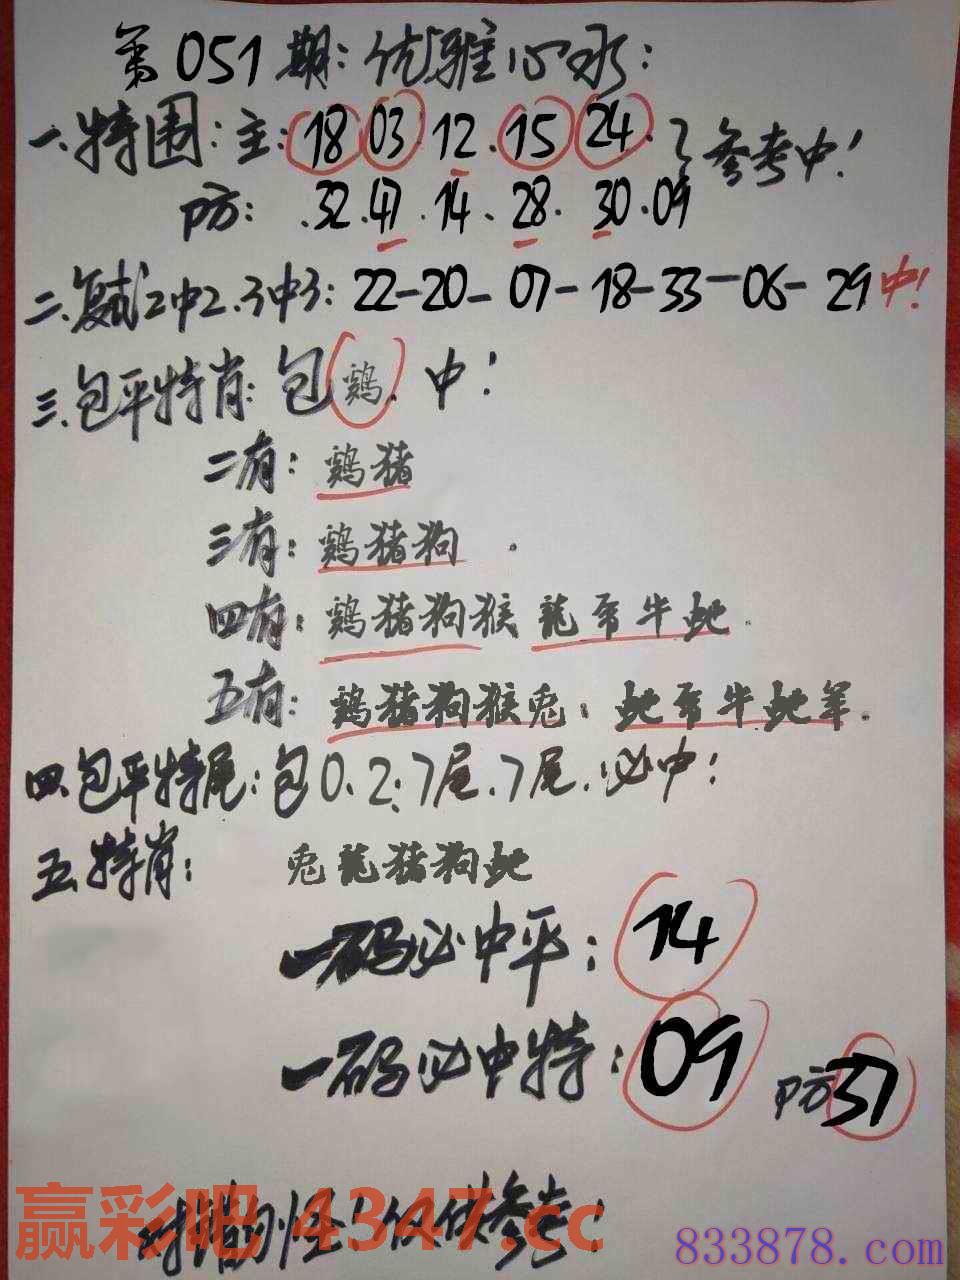 第051期:优雅心水:
一.特围:主:18 03.12.15 24.?参考中!
防:.32.47.14.28.30.09
二.复试2中2.3中3:22-20-07-18-33-06-29中!
三.包平特肖:包鸡.中!
二有:鸡猪
三有:鸡猪狗.
四有:鸡猪狗猴 龍 牛蛇.
五有:鸡猪狗猴兔:蛇 牛蛇羊.
四.包平特尾:包0.2:7尾.7尾.必中!
五.特肖:兔龍猪狗蛇
一码必中平:14
一码必中特:09 防37
对错勿怪!仅供参考!
赢彩吧 4347.cc
833878.com